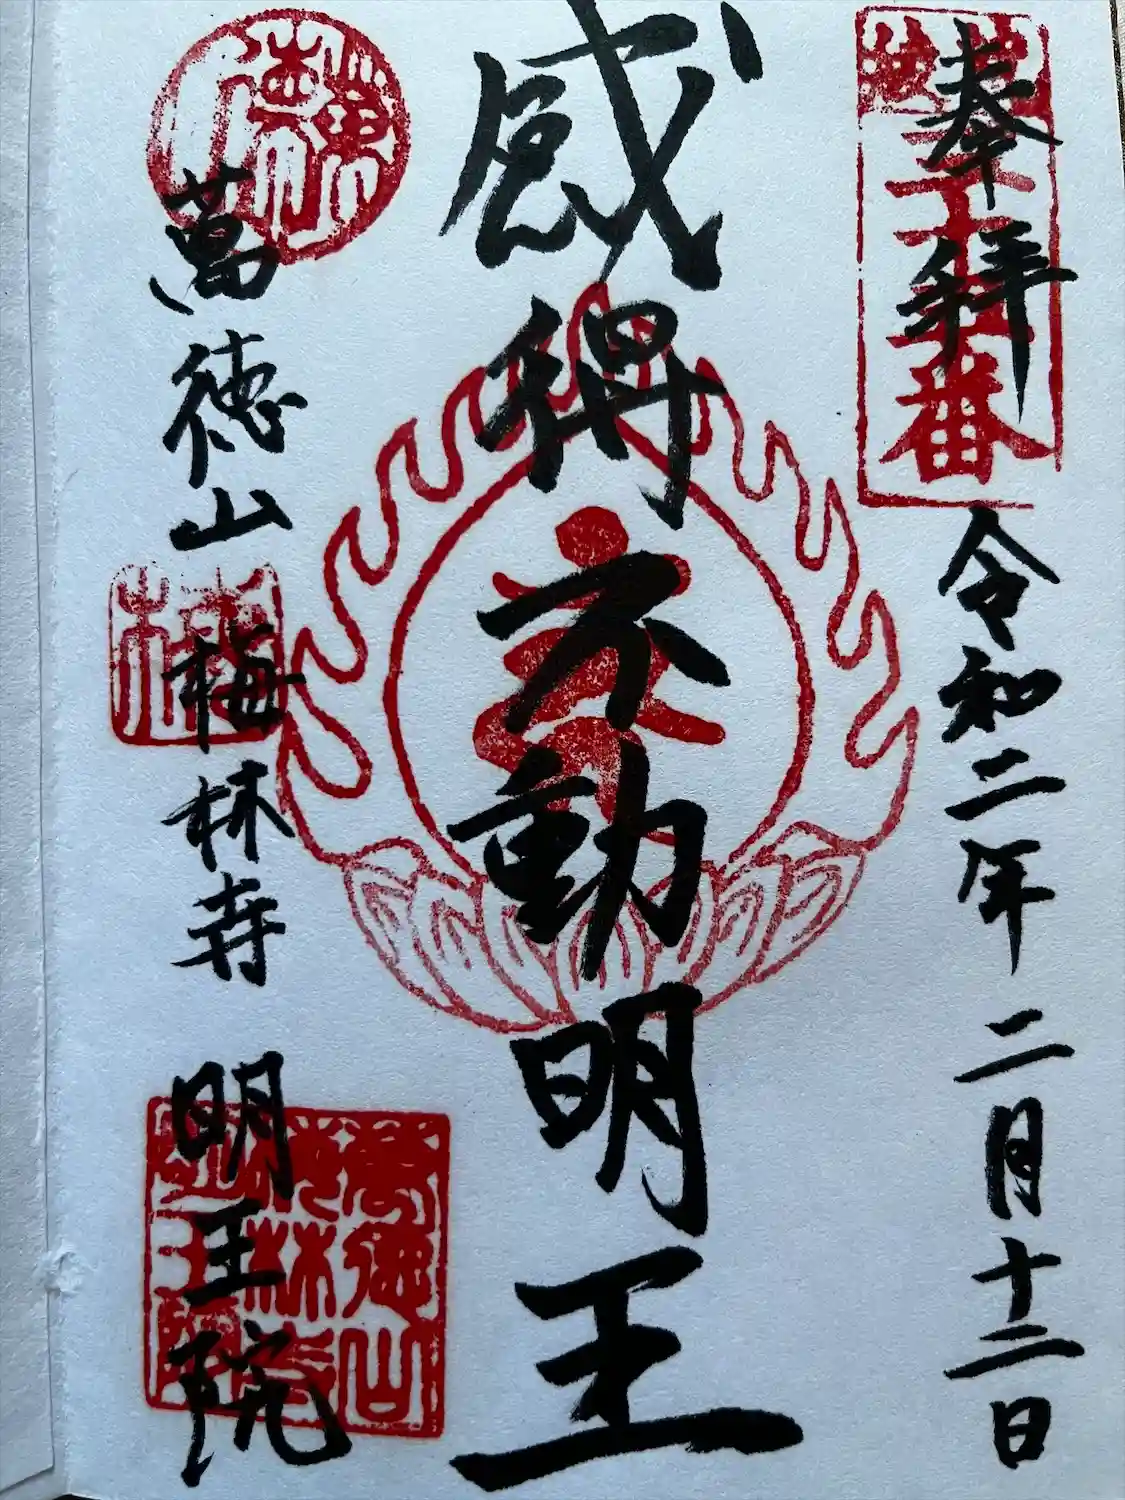 奉拝
令和二年 二月十二日
感得
不動明王
萬徳山
梅林寺
明王院
萬徳山
梅林寺
明王院